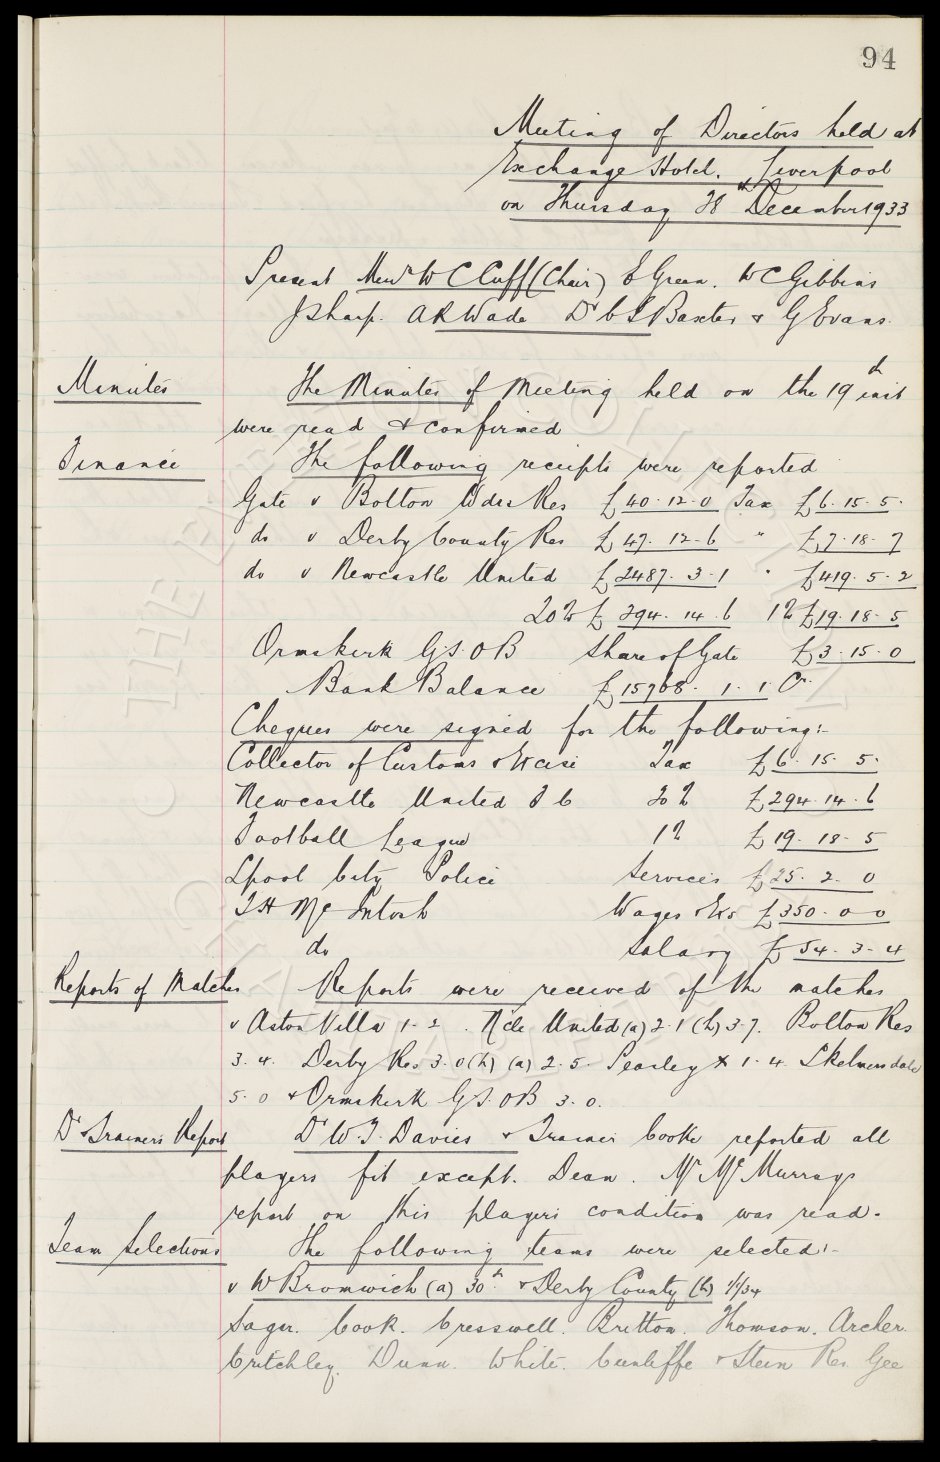 94
Meeting of Directors held at
Exchange Hotel. Liverpool
on Thursday 28th December 1933
Present Messrs W C Cuff (Chair) E Green. W C Gibbins
J Sharp. A R Wade Dr C S Baxter & G Evans.
Minutes The Minutes of Meeting held on the 19th inst
were read & confirmed
Finance The following receipts were reported
Gate v Bolton Wdrs Res £40-12-0 Tax £6-15-5.
do v Derby County Res £47-12-6 " £7-18-7
do v Newcastle United £2487-3-1 " £419-5-2
20% £294-14-6 1% £19-18-5
Ormskirk G.S.O B Share of Gate £3-15-0
Bank Balance £15768-1-1 Cr
Cheques were signed for the following:-
Collector of Customs & Excise Tax £6-15-5.
Newcastle United F C 20% £294-14-6
Football League 1% £19-18-5
Lpool City Police Services £25-2-0
T H McIntosh Wages &c £350-0-0
do Salary £54-3-4
Reports of Matches Reports were received of the matches
v Aston Villa 1-2. Ncle United (a) 2-1 (h) 3-7. Bolton Res
3-4. Derby Res 3-0 (h) (a) 2-5. 1-4. Skelmersdale
5-0 & Ormskirk G.S.OB 3-0.
Dr & Trainers Report Dr W.F. Davies & Trainer Cooke reported all
players fit except. Dean. Mr McMurrays
report on this players condition was read.
Team Selections The following teams were selected:-
v W Bromwich (a) 30th & Derby County (h) 1/1/34
Sagar. Cook. Cresswell. Britton. Thomson. Archer.
Critchley. Dunn. White. Cunliffe & Stein Res. Gee